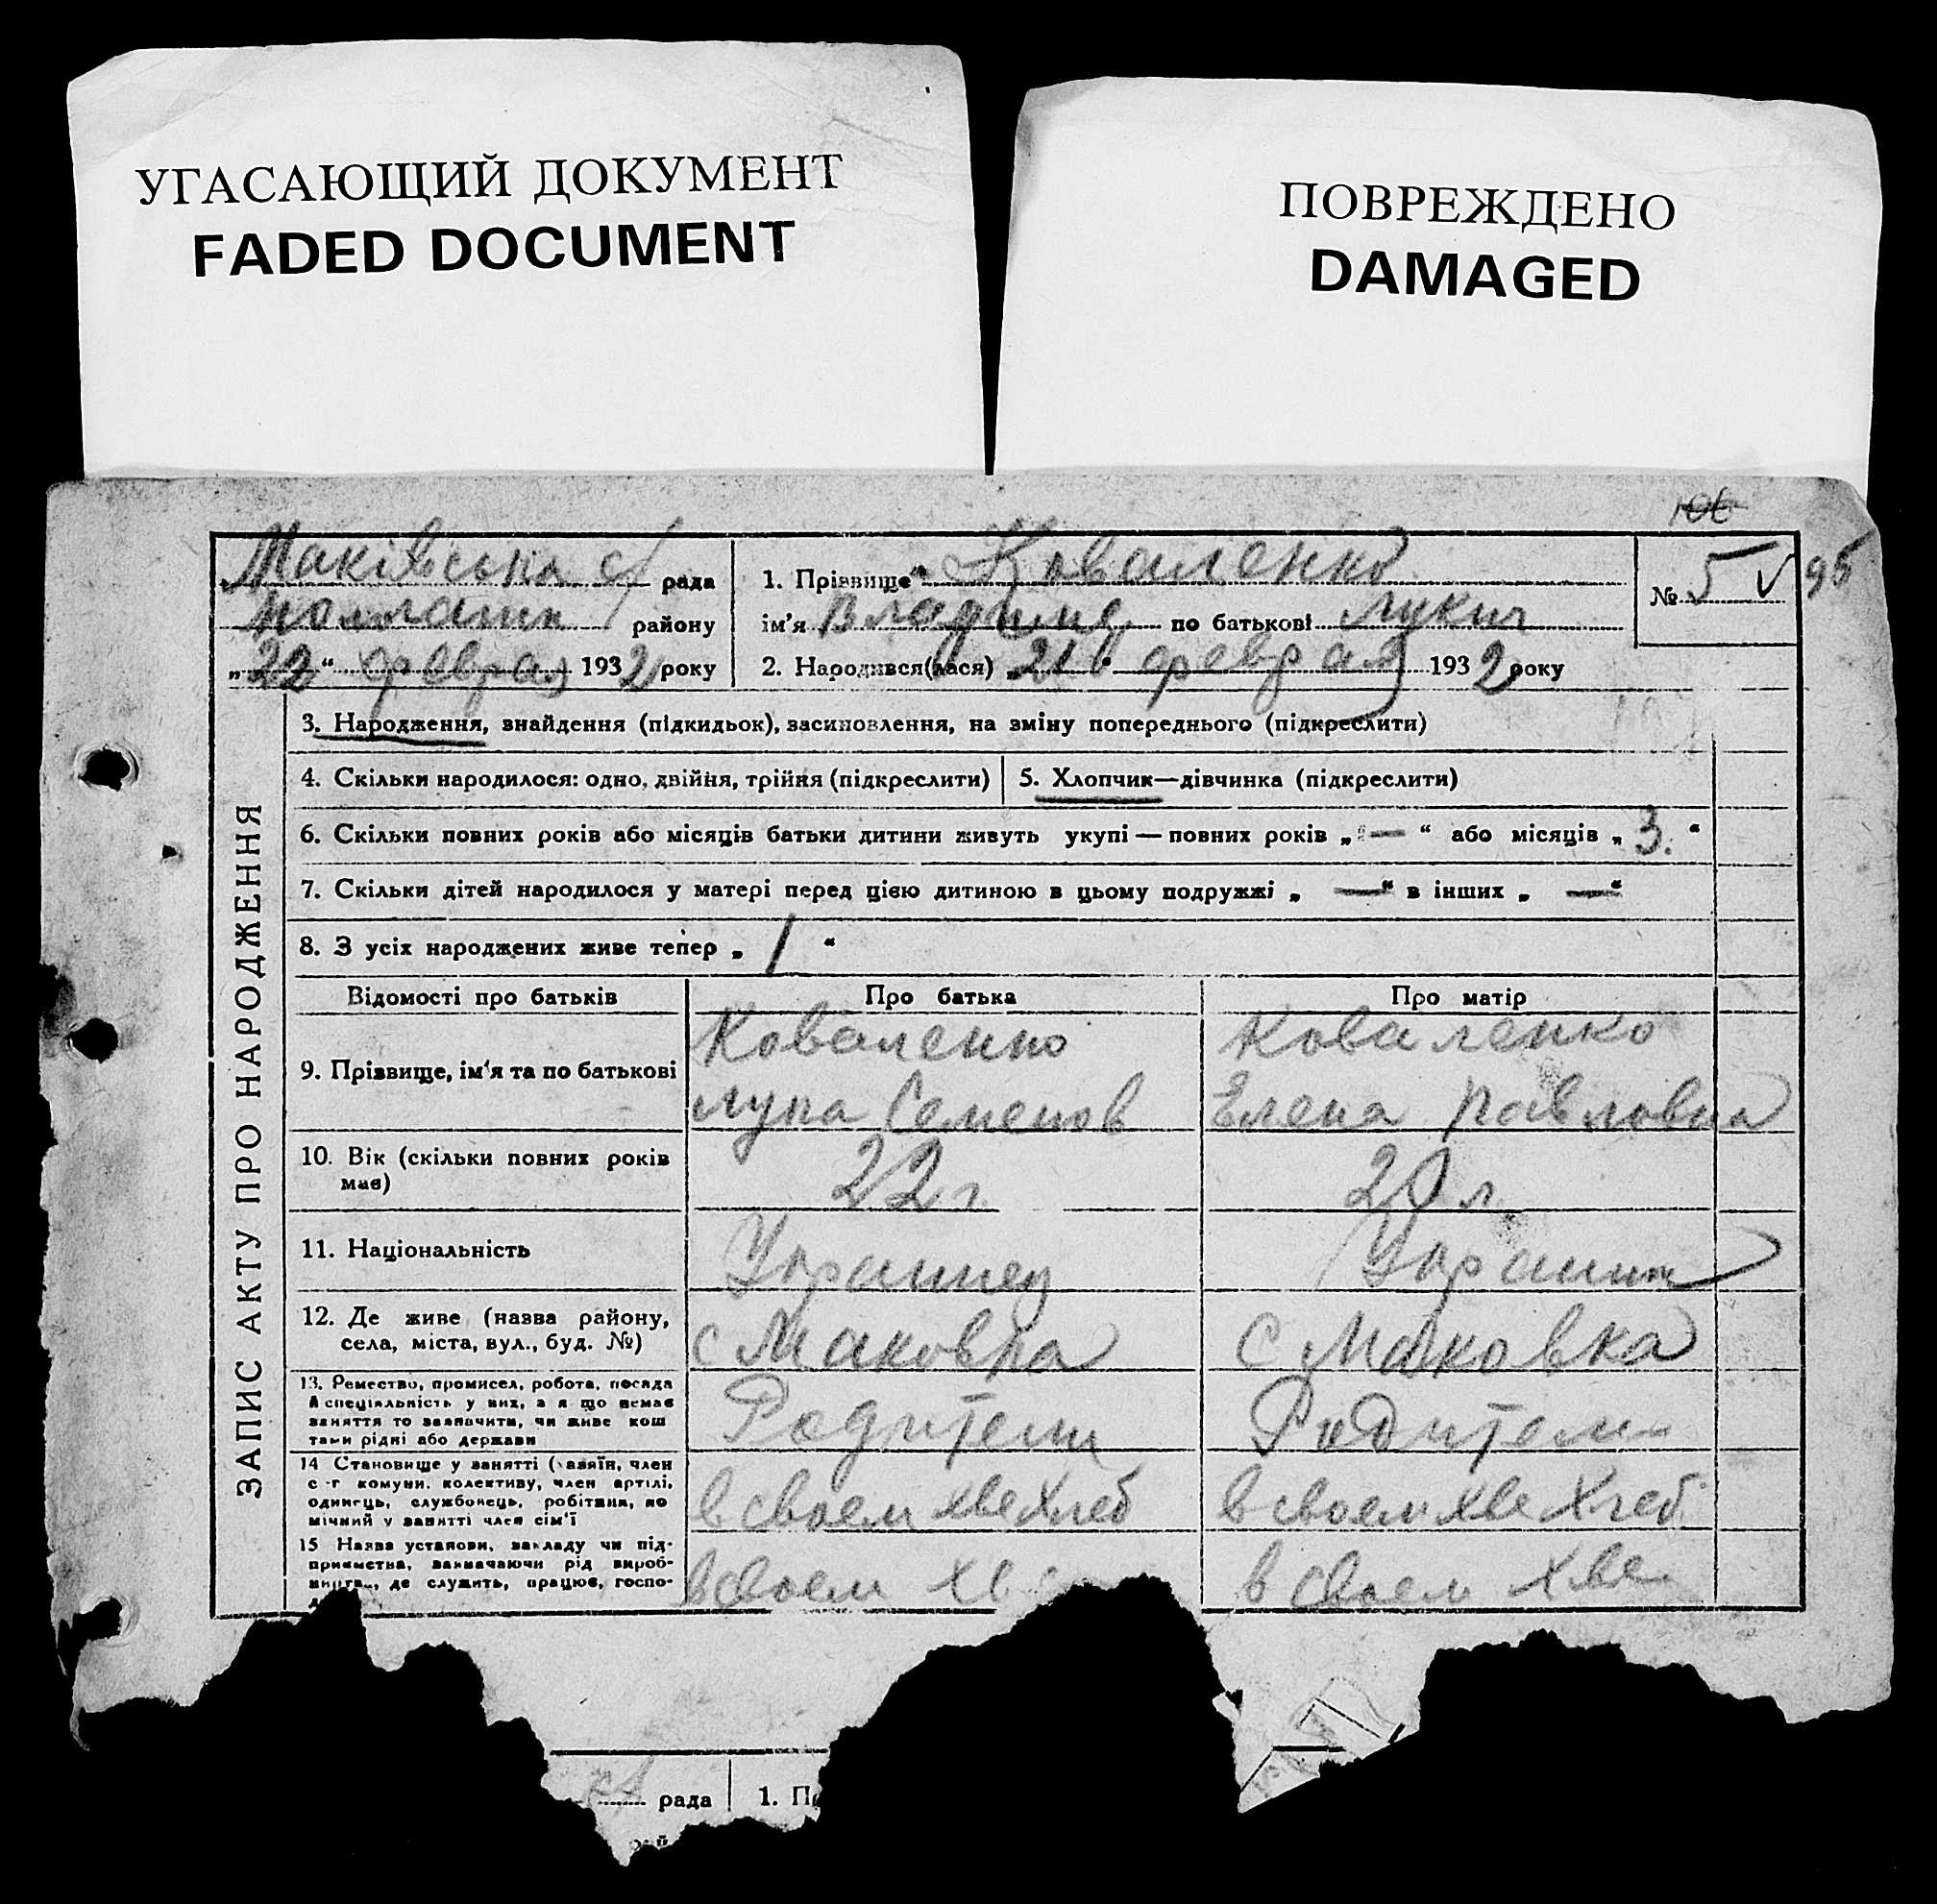 УГАСАЮЩИЙ ДОКУМЕНТ
FADED DOCUMENT
ПОВРЕЖДЕНО
DAMAGED
106
Маківська с/ рада
району
„22“ феврал 1932 року
1. Прізвище Коваленко
ім'я Владимир по батькові Лукич
2. Народився(лася) 21 феврал 1932 року
№ 5 V 95
ЗАПИС АКТУ ПРО НАРОДЖЕННЯ
3. Народження, знайдення (підкидьок), засиновлення, на зміну попереднього (підкреслити)
4. Скільки народилося: одно, двійня, трійня (підкреслити)
5. Хлопчик—дівчинка (підкреслити)
6. Скільки повних років або місяців батьки дитини живуть укупі — повних років „—“ або місяців „3.“
7. Скільки дітей народилося у матері перед цією дитиною в цьому подружжі „—“ в інших „—“
8. З усіх народжених живе тепер „1“
Відомості про батьків Про батька Про матір
9. Прізвище, ім'я та по батькові
Коваленко
Лука Семенов
Коваленко
Елена Павловна
10. Вік (скільки повних років
має)
22 г.
20 л
11. Національність
Украинец
Украин
12. Де живе (назва району,
села, міста, вул., буд. №)
с Маковка
с Маковка
13. Ремество, промисел, робота, посада
й спеціяльність у них, а я що немає
заняття то зазначити, чи живе кош
тами рідні або держави
Родители
Родители
14 Становище у занятті (хазяїн, член
с-г комуни, колективу, член артілі,
одинець, службовець, робітник, по
мічний у занятті член сім'ї
в своем хве Хлеб
в своем хве Хлеб
15 Назва установи, закладу чи під-
приємства, зазначаючи рід вироб-
ництва, де служить, працює, госпо-
в своем хв
в своем хве
рада 1. Пр